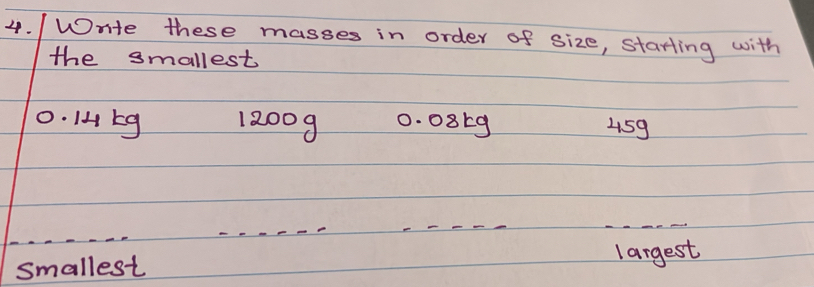 4. Write these masses in order of size, starting with
the smallest
0.14 kg 1200g 0.08kg 45g
smallest largest